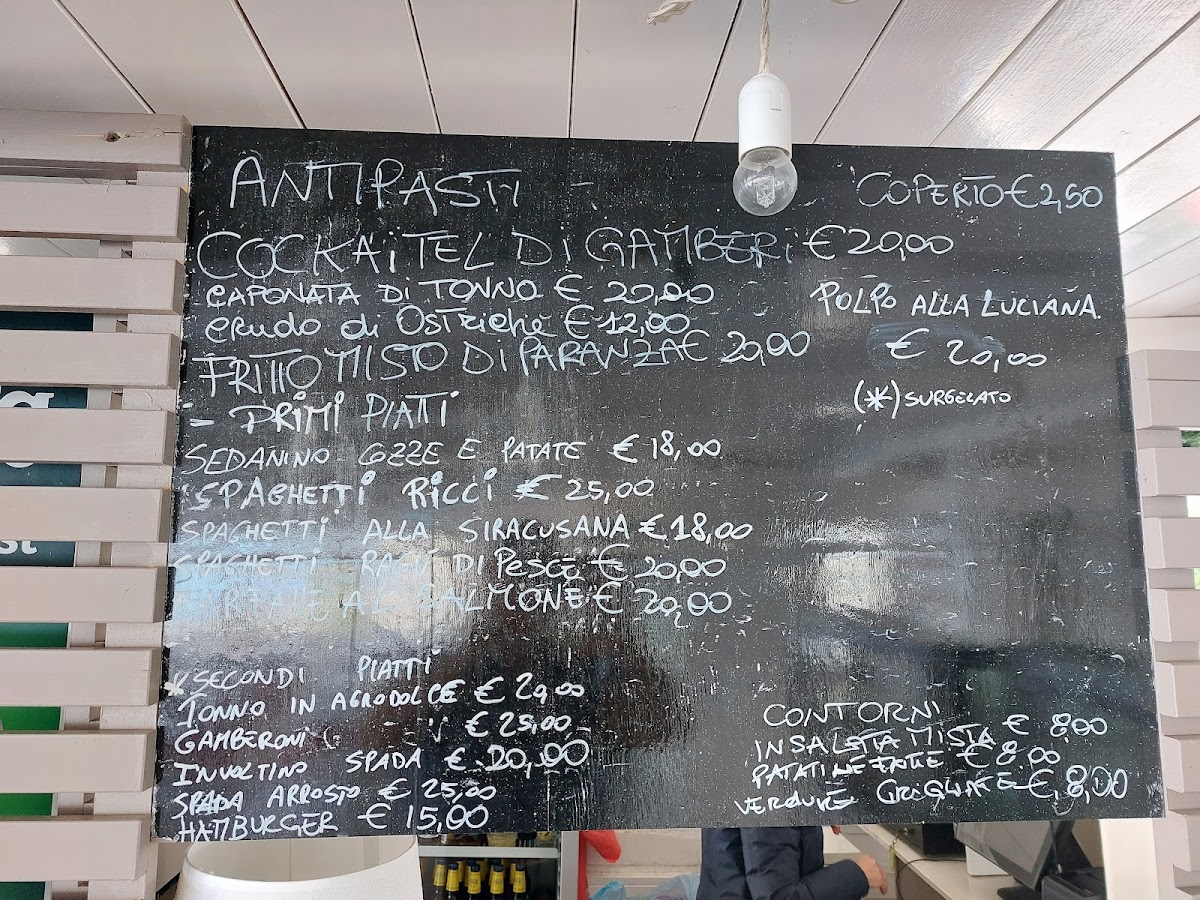 ANTIPASTI -
COPERTO € 2,50
COCKAITEL DI GAMBERI € 20,00
CAPONATA DI TONNO € 20,00
CRUDO di OSTRICHE € 12,00
FRITTO MISTO DI PARANZA € 20,00
POLPO ALLA LUCIANA
€ 20,00
(*) SURGELATO
- PRIMI PIATTI
SEDANINO COZZE E PATATE € 18,00
SPAGHETTI RICCI € 25,00
SPAGHETTI ALLA SIRACUSANA € 18,00
SPAGHETTI RAGÙ DI PESCE € 20,00
AL SALMONE € 20,00
SECONDI PIATTI
TONNO IN AGRODOLCE € 20,00
GAMBERONI € 25,00
INVOLTINO SPADA € 20,00
SPADA ARROSTO € 25,00
HAMBURGER € 15,00
CONTORNI
INSALATA MISTA € 8,00
PATATINE FRITTE € 8,00
VERDURE GRIGLIATE € 8,00
st